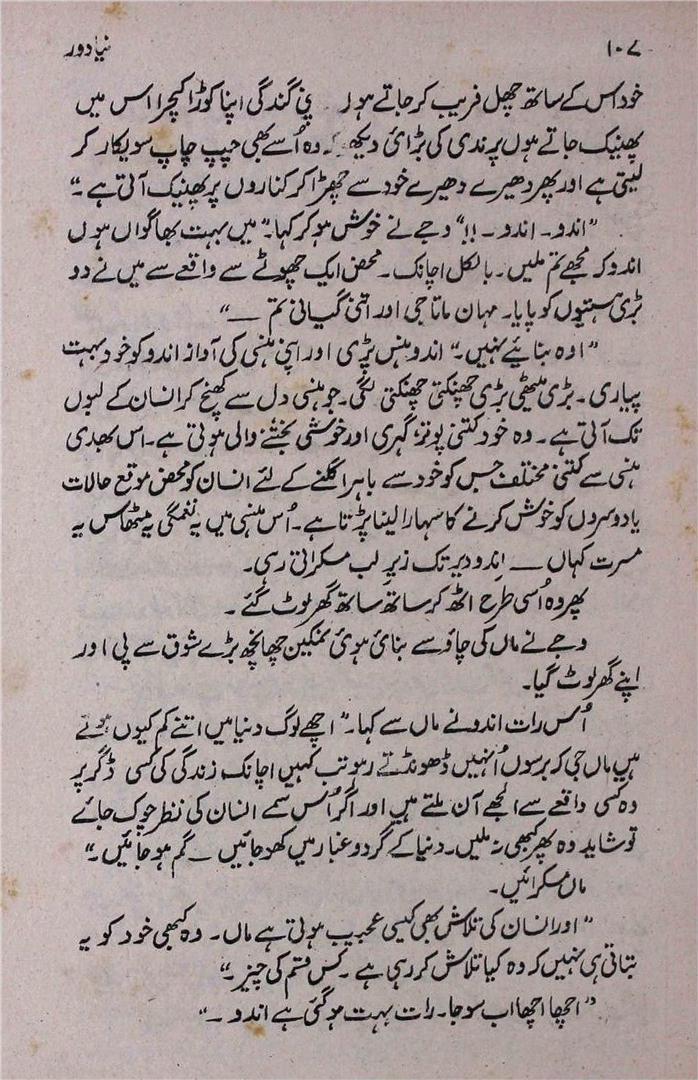 ۱۰۷ نیا دور
خود اس کے ساتھ چھل فریب کر جاتے ہوں گندگی اپنا کوڑا کچرا اس میں
پھینک جاتے ہوں پر ندی کی بڑائی دیکھو کہ وہ اُسے بھی چپ چاپ سویکار کر
لیتی ہے اور پھر دھیرے دھیرے خود سے چھڑا کر کناروں پر پھینک آتی ہے۔“
”اندو۔ اندو۔ !!“ وجے نے خوش ہو کر کہا۔ ”میں بہت بھاگواں ہوں
اندو کہ مجھے تم ملیں۔ بالکل اچانک۔ محض ایک چھوٹے سے واقعے سے میں نے دو
بڑی ہستیوں کو پایا۔ مہان ماتا جی اور اتنی گیانی تم ــــ“
”اوہ بنائیے نہیں۔“ اندو ہنس پڑی اور اپنی ہنسی کی آواز اندو کو خود بہت
پیاری۔ بڑی میٹھی بڑی چھنکتی چھنکتی لگی۔ جو ہنسی دل سے کھنچ کر انسان کے لبوں
تک آتی ہے۔ وہ خود کتنی پوتر، گہری اور خوشی بخشنے والی ہوتی ہے۔ اس بھدی
ہنسی سے کتنی مختلف جس کو خود سے باہر اگلنے کے لئے انسان کو محض موقع حالات
یا دوسروں کو خوش کرنے کا سہارا لینا پڑتا ہے۔ اُس ہنسی میں یہ نغمگی یہ مٹھاس یہ
مسرت کہاں ــــ اندو دیر تک زیرِ لب مسکراتی رہی۔
پھر وہ اُسی طرح اٹھ کر ساتھ ساتھ گھر لوٹ گئے۔
وجے نے ماں کی چاؤ سے بنائی ہوئی نمکین چھانچھ بڑے شوق سے پی اور
اپنے گھر لوٹ گیا۔
اُس رات اندو نے ماں سے کہا۔ ”اچھے لوگ دنیا میں اتنے کم کیوں ہوتے
ہیں ماں جی کہ برسوں اُنہیں ڈھونڈتے رہو تب کہیں اچانک زندگی کی کسی ڈگر پر
وہ کسی واقعے سے الجھے آن ملتے ہیں اور اگر اُس سمے انسان کی نظر چوک جائے
تو شاید وہ پھر کبھی نہ ملیں۔ دنیا کے گرد و غبار میں کھو جائیں ــ گم ہو جائیں۔“
ماں مسکرائیں۔
”اور انسان کی تلاش بھی کیسی عجیب ہوتی ہے ماں۔ وہ کبھی خود کو یہ
بتاتی ہی نہیں کہ وہ کیا تلاش کر رہی ہے۔ کس قسم کی چیز۔“
”اچھا اچھا اب سو جا۔ رات بہت ہو گئی ہے اندو۔“